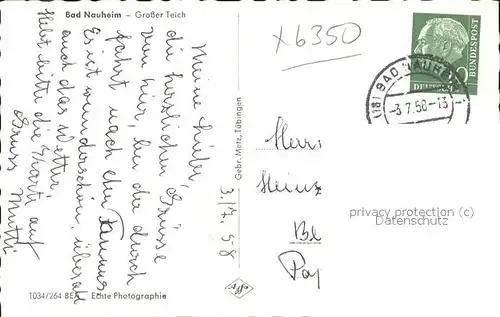 Bad Nauheim – Großer Teich
Meine Lieben,
die herzlichsten Grüsse
von hier, bei der durch
fahrt nach dem Taunus
Es ist wunderschön, überall
auch das Wetter
Hebt bitte die Karte auf
Gruss Mutti
3./7. 58
1034/264 BE
Echte Photographie
Gebr. Metz, Tübingen
x6350
DEUTSCHE
BUNDESPOST
(16) BAD NAUHEIM
-3.7.58-13
Herr
Heinz
privacy protection (c)
Datenschutz